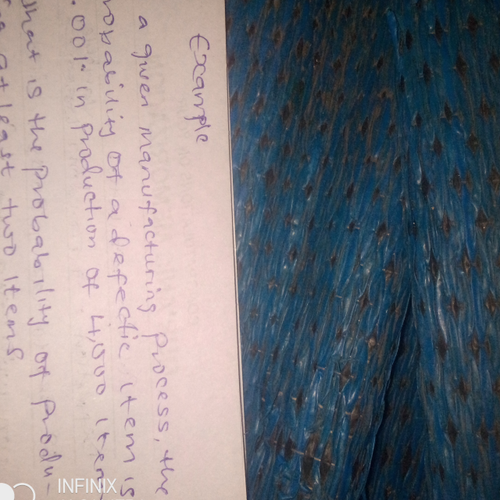 Example
a given manufacturing process, the
probability of a defective item is
.001. in production of 4,000 item
what is the probability of produ-
at least two items
INFINIX